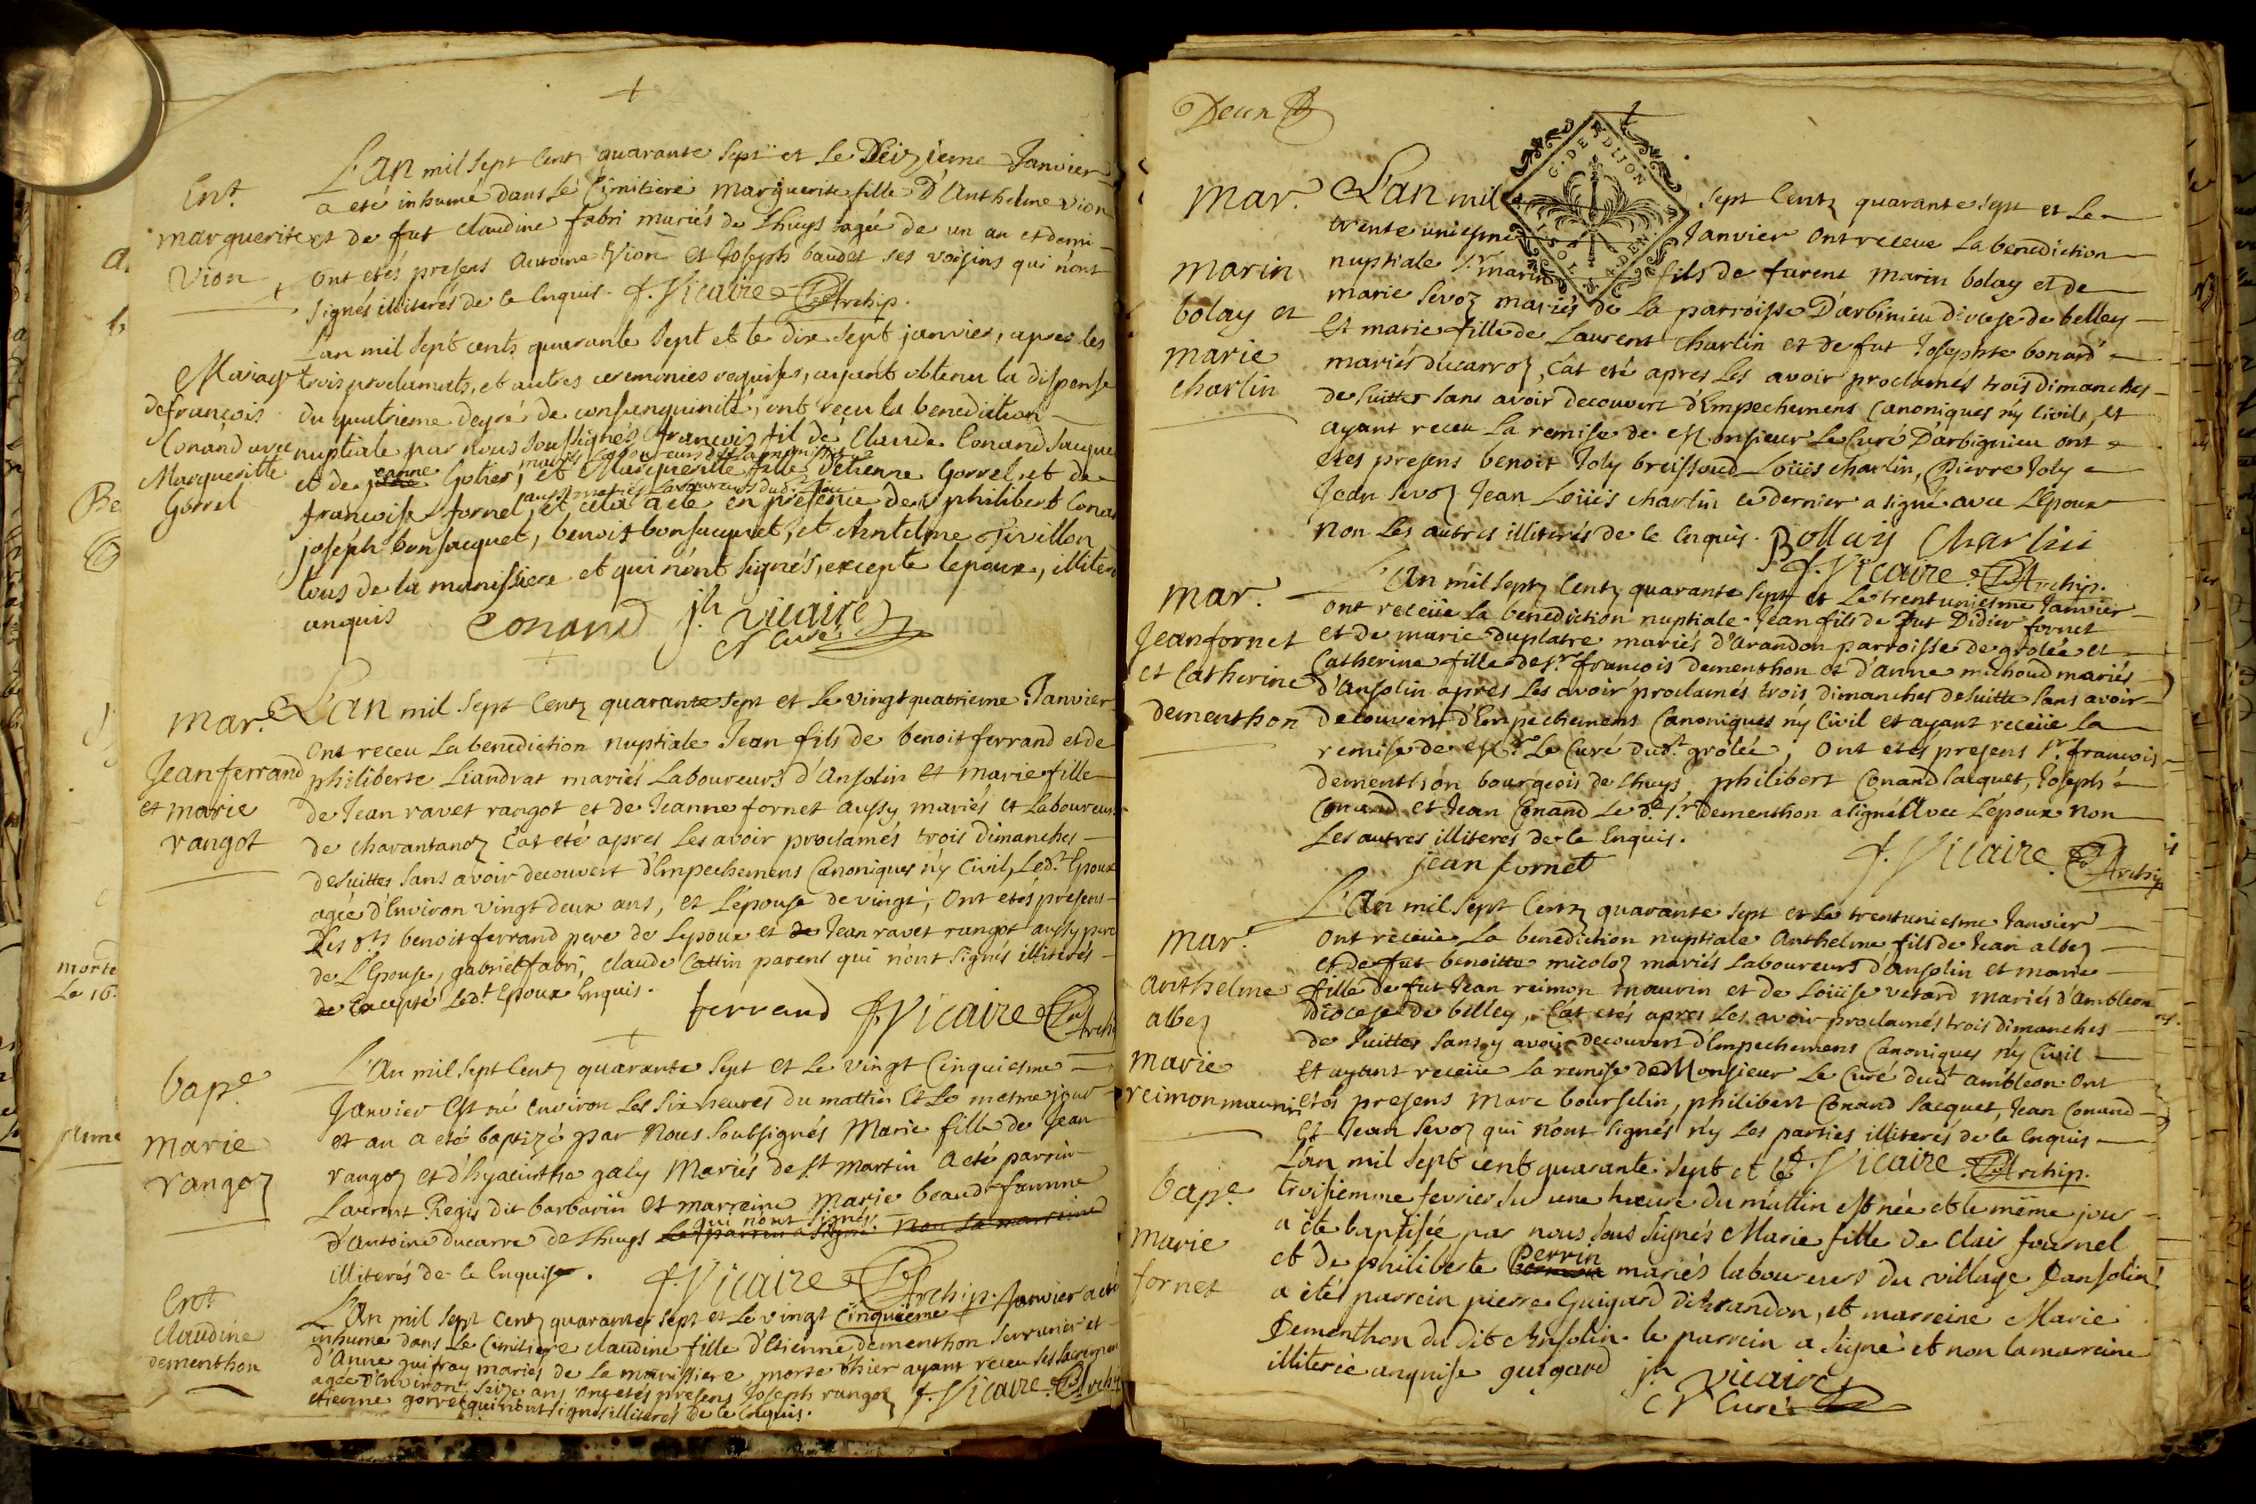 Ent.
marguerite
Vion
L'an mil sept Centz quarante sept et Le Seizieme Janvier
a eté inhumé dans Le Cimitiere marguerite fille D'Anthelme Vion
et de fut claudine fabri mariés de Lhuys agée de un an et demi
ont etés presens Antoine Vion et Joseph baudet ses voisins qui n'ont
signés illiterés de ce Enquis. J. Vicaire C. Archip.
Mariage
de françois
Conand avec
Margueritte
Gorrel
L'an mil sept cents quarante sept et le dix sept janvier, apres les
trois proclamats, et autres ceremonies requises, ayant obtenu la dispense
du quatrieme degré de consanguinité, ont reçu la benediction
nuptiale par nous soussignés françois fil de Claude Conand Jacque
et de jeanne Gotier, et Margueritte fille d'etienne Gorrel, et de
francoise fornel, et cela a ete en presence de philibert Conan
joseph bonjacquet, benoit bonjacquet, et Antelme
tous de la manissiere et qui n'ont signés, excepté lepoux, illiter
anquis Conand jh. Vicaire
Curé
mar.e
Jean ferrand
et marie
rangot
L'an mil sept Centz quarante sept et Le vingt quatrieme Janvier
ont receu La benediction nuptiale Jean fils de benoit ferrand et de
philiberte Liandrat mariés Laboureurs d'Ansolin et marie fille
de Jean ravet rangot et de Jeanne fornet aussy mariés et Laboureurs
de charantanoz C'at eté apres Les avoir proclamés trois dimanches
de suittes sans avoir decouvert d'Empechemens Canoniques n'y Civil, Led.t Epoux
agée d'Environ vingt deux ans, et L'épouse de vingt, ont etés presens
Les benoit ferrand pere de Lepoux et de Jean ravet rangot aussy pere
de L'Epouse, gabriel fabri, claude Cattin parens qui n'ont signés illiterés
de excepté Led.t Epoux Enquis.
ferrand J. Vicaire C. Archip
bap.e
marie
rangoz
L'An mil sept Centz quarante sept et Le vingt Cinquiesme
Janvier est né environ Les six heures du mattin et Le mesme jour
et an a eté baptizé par Nous soubsignés Marie fille de Jean
rangoz et d'hyacinthe galy Mariés de St Martin a eté parrin
Laurent Regis dit barbarin et marreine Marie beaud femme
d'Antoine ducarre de Lhuys qui n'ont signés
illiterés de ce Enquis. J. Vicaire C. Archip.
Ent
claudine
dementhon
L'An mil sept Centz quarante sept et Le vingt Cinquieme Janvier a eté
inhumé dans Le Cimitiere claudine fille d'Etienne dementhon serrurier et
d'Anne guifray mariés de La manissiere, morte d'hier ayant receu ses sacremen
agée d'Environ seize ans ont etés presens Joseph rangoz
etienne gorrel qui n'ont signés illiterés de ce Enquis. J. Vicaire C. Archip
Deux
G. DE DIJON
mar.
marin
bolay et
marie
charlin
L'an mil sept Centz quarante sept et Le
trente uniesme Janvier ont receue La benediction
nuptiale Sr marin fils de furent marin bolay et de
marie sevoz mariés de La parroisse D'arbinieu diocese de belley
Et marie fille de Laurent charlin et de fut Josephte bonard
mariés ducarroz, C'at eté apres Les avoir proclamés trois dimanches
de suittes sans avoir decouvert d'Empechemens Canoniques n'y Civils, et
ayant receu La remise de Monsieur Le Curé D'arbignieu ont
etés presens benoit Joly brissaud Loüis charlin, Pierre Joly
Jean sevoz Jean Loüis charlin ce dernier a signé avec L'époux
non Les autres illiterés de ce Enquis. Bollay Charlin
J. Vicaire C. Archip.
mar.
Jean fornet
et Catherine
dementhon
L'An mil septz Centz quarante sept et Le trentuniesme Janvier
ont receüe La benediction nuptiale Jean fils de fut Didier fornet
et de marie duplatre mariés d'Arandon parroisse de grolée et
Catherine fille de Sr françois dementhon et d'Anne michoud mariés
d'Ansolin apres Les avoir proclamés trois dimanches de suitte sans avoir
decouvert d'Empechemens Canoniques n'y Civil et ayant receüe La
remise de Mr Le Curé dud.t grolée, ont etés presens Sr françois
dementhon bourgeois de Lhuys, philibert Conand Jacquet, Joseph
Conand et Jean Conand Le d.t Sr dementhon a signé avec L'époux non
Les autres illiteres de ce Enquis.
jean fornet J. Vicaire C. Archip
mar.
anthelme
albez
marie
reimon mauvin
L'An mil sept Centz quarante sept et Le trentuniesme Janvier
ont receüe La benediction nuptiale Anthelme fils de Jean albez
et de fut benoitte micoloz mariés Laboureurs d'Ansolin et marie
fille de fut Jean reimon mauvin et de Loüise vetard mariés d'Ambleon
diocese de belley, C'at etés apres Les avoir proclamés trois dimanches
de suittes sans y avoir decouvert d'Empechemens Canoniques n'y Civil
Et ayant receüe La remise de Monsieur Le Curé dud.t ambleon ont
etés presens Marc bourselin, philibert Conand Jacquet, Jean Conand
Et Jean sevoz qui n'ont signés n'y Les parties illiterés de ce Enquis
J. Vicaire C. Archip.
bap.e
marie
fornet
L'an mil sept cent quarante sept et le
troisiemme fevrier su une heure du mattin est née et le mème jour
a ete baptisée par nous sous signés Marie fille de Clair fournel
et de philiberte Perrin mariés laboureurs du village Dansolin
a été parrein pierre Guigard d'Arandon, et marreine Marie
Dementhon du dit Ansolin. le parrein a signé et non la mareine
illiterée anquise guigard jh Vicaire
Curé
morte
Le 16.